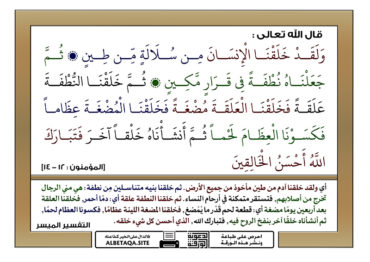 قال الله تعالى :
وَلَقَدْ خَلَقْنَا الْإِنسَانَ مِن سُلَالَةٍ مِّن طِينٍ ۞ ثُمَّ
جَعَلْنَاهُ نُطْفَةً فِي قَرَارٍ مَّكِينٍ ۞ ثُمَّ خَلَقْنَا النُّطْفَةَ
عَلَقَةً فَخَلَقْنَا الْعَلَقَةَ مُضْغَةً فَخَلَقْنَا الْمُضْغَةَ عِظَاماً
فَكَسَوْنَا الْعِظَامَ لَحْماً ثُمَّ أَنشَأْنَاهُ خَلْقاً آخَرَ فَتَبَارَكَ
اللَّهُ أَحْسَنُ الْخَالِقِينَ
[المؤمنون : ١٢ - ١٤]
أي ولقد خلقنا آدم من طين مأخوذ من جميع الأرض. ثم خلقنا بنيه متناسلين من نطفة : هي مني الرجال
تخرج من أصلابهم، فتستقر متمكنة في أرحام النساء. ثم خلقنا النطفة علقة أي : دمًا أحمر، فخلقنا العلقة
بعد أربعين يومًا مضغة أي : قطعة لحم قَدْر ما يُمْضغ، فخلقنا المضغة اللينة عظامًا، فكسونا العظام لحمًا،
ثم أنشأناه خلقًا آخر بنفخ الروح فيه، فتبارك الله , الذي أحسن كل شيء خلقه.
التفسير الميسر
الدال على الخير كفاعله
ALBETAQA.SITE
احرص على طباعة
ونشر هذه الورقة